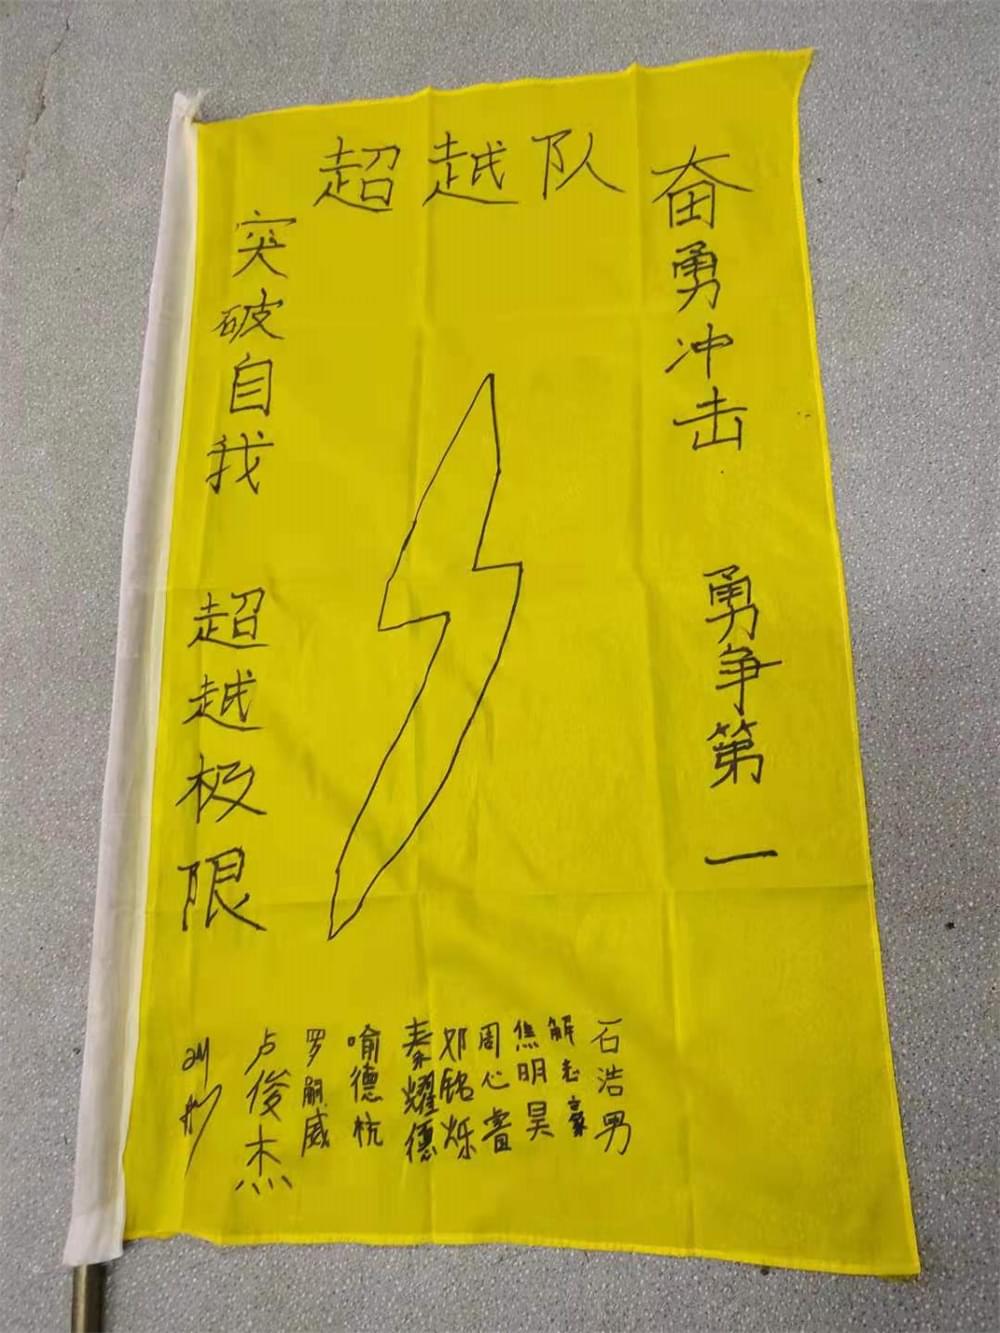 超越队
奋勇冲击 勇争第一
突破自我 超越极限
石浩男
解志豪
焦明昊
周心睿
邓铭烁
秦耀德
喻德杭
罗嗣威
卢俊杰